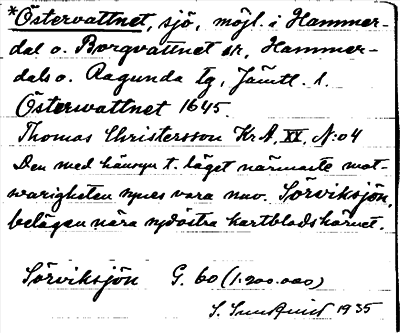 *Östervattnet, sjö, möjl. i Hammer-
dal o. Borgvattnet sn, Hammer-
dals o. Ragunda tg, Jämtl. l.
Östervattnet 1645.
Thomas Christersson Kr. A, XX, N:o 4
Den med hänsyn t. läget närmaste mot-
svarigheten synes vara nuv. Sörviksjön,
belägen nära sydöstra kartbladshörnet.
Sörviksjön G. 60 (1:200.000)
S. 1935